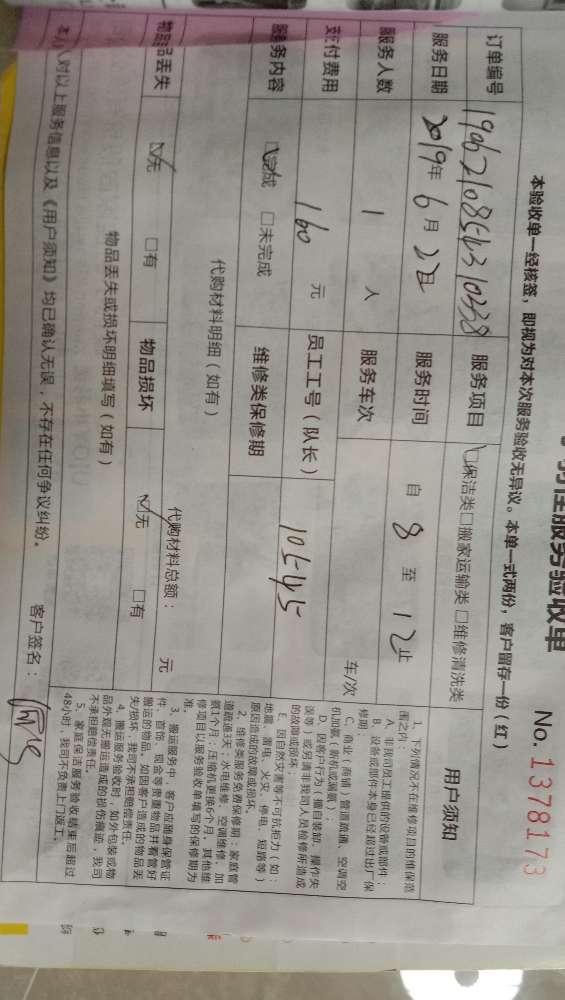 性服务验收单
No. 1378173
本验收单一经核签，即视为对本次服务验收无异议。本单一式两份，客户留存一份（红）
订单编号 服务项目 ☑保洁类□搬家运输类 □维修清洗类 用户须知
服务日期 2019年 6月 22日 服务时间 自 8 至 12 止
服务人数 1 人 服务车次 车/次
支付费用 160 元 员工工号（队长） 105495
服务内容 ☑完成 □未完成 维修类保修期
代购材料明细（如有）
代购材料总额： 元
物品丢失 ☑无 □有 物品损坏 ☑无 □有
物品丢失或损坏明细填写（如有）
本人对以上服务信息以及《用户须知》均已确认无误，不存在任何争议纠纷。
客户签名：
1、下列情况不在维修项目的维保范
围之内：
A、非我司员工提供的设备或部件；
B、设备或部件本身已经超过出厂保
修期；
C、商业（商铺）管道疏通、空调空
机加氟（新机或漏氟）；
D、因客户行为（擅自装卸、操作失
误等）或另请非我司人员检修所造成
的故障或损坏；
E、因自然灾害等不可抗拒力（如：
地震、雷击、火灾、停电、短路等）
原因造成的故障或损坏。
2、维修类服务免费保修期：家庭管
道疏通3天；水电维修、空调维修、加
氟1个月；压缩机更换6个月，其他维
修项目以服务验收单填写的保修期为
准。
3、搬运服务中，客户应随身保管证
件、首饰、现金等贵重物品并看管好
搬运的物品，如因客户造成的物品丢
失/损坏，我司不承担赔偿责任。
4、搬运服务验收时，如外包装或物
品外观无搬运造成的损伤痕迹，我司
不承担赔偿责任。
5、家庭保洁服务验收结束后超过
48小时，我司不负责上门返工。